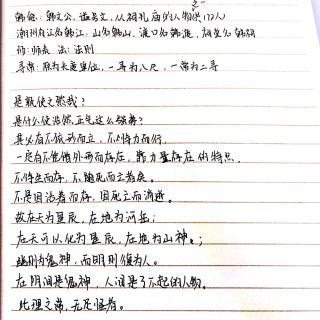 之一
韩愈:韩文公,谥号文,从祀孔庙的人物(172人)
潮州府江名韩江,山名韩山,渡口名韩渡,祠堂名韩祠
师:师表 法:法则
寻常:原为长度单位,一寻为八尺,一常为二寻
是孰使之然哉?
是什么使浩然正气这么强轟?
其必有不依形而立,不恃力而行,
一定有不凭借外形而存在,靠力量存在的特点,
不待生而存,不随死而亡者矣。
不是因活着而存,因死亡而消逝。
故在天为星辰,在地为河岳;
在天可以化为星辰,在地为山神;
幽则为鬼神,而明则复为人。
在阴间是鬼神,人间是了不起的人物。
此理之常,无足怪者。